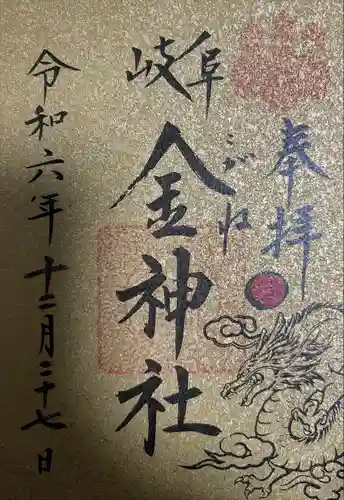 奉拝
岐阜
金神社
こがね
令和六年十二月二十七日